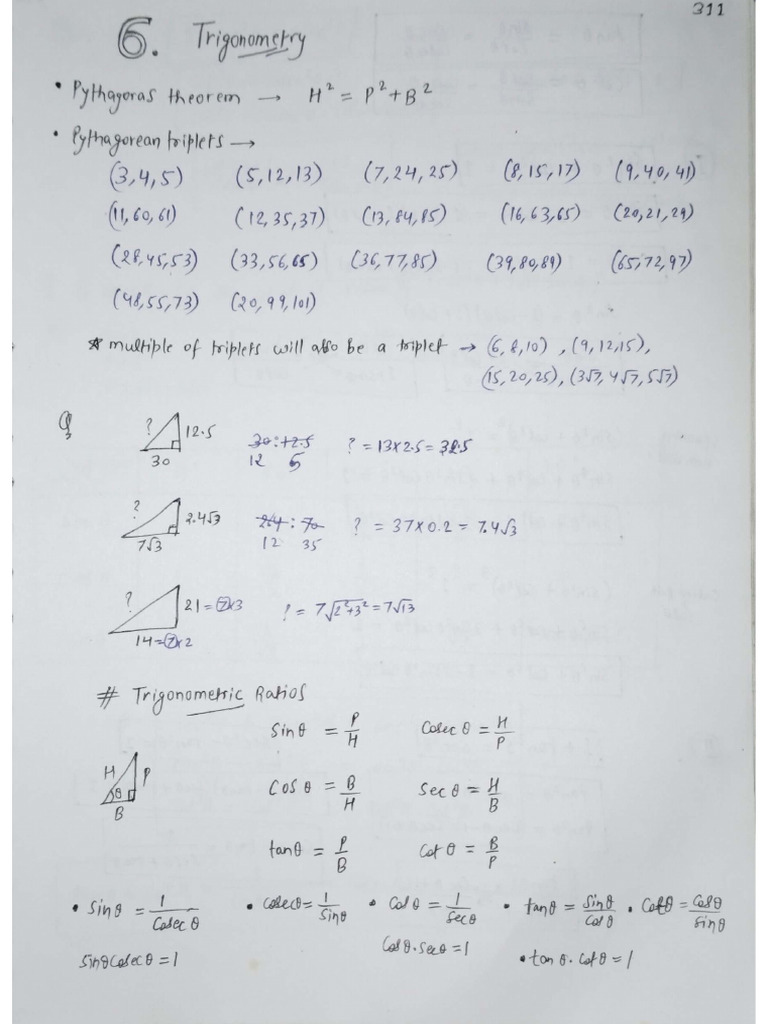 311
6. Trigonometry
• Pythagoras theorem → H² = P² + B²
• Pythagorean triplets →
(3,4,5) (5,12,13) (7,24,25) (8,15,17) (9,40,41)
(11,60,61) (12,35,37) (13,84,85) (16,63,65) (20,21,29)
(28,45,53) (33,56,65) (36,77,85) (39,80,89) (65,72,97)
(48,55,73) (20,99,101)
* multiple of triplets will also be a triplet → (6,8,10), (9,12,15),
(15,20,25), (3√7, 4√7, 5√7)
Q
? 12.5 30 : 12.5 ? = 13×2.5 = 32.5
30 12 5
? 2.4√3 2.4 : 70 ? = 37×0.2 = 7.4√3
7√3 12 35
? 21 = 7×3 ? = 7√2²+3² = 7√13
14 = 7×2
# Trigonometric Ratios
sinθ = P/H Cosec θ = H/P
H P θ B
Cosθ = B/H Sec θ = H/B
tanθ = P/B Cot θ = B/P
• Sinθ = 1/Cosec θ • Cosecθ = 1/Sinθ • Cosθ = 1/Secθ • tanθ = Sinθ/Cosθ • Cotθ = Cosθ/Sinθ
sinθ Cosec θ = 1 Cosθ. Secθ = 1 • tan θ. Cotθ = 1